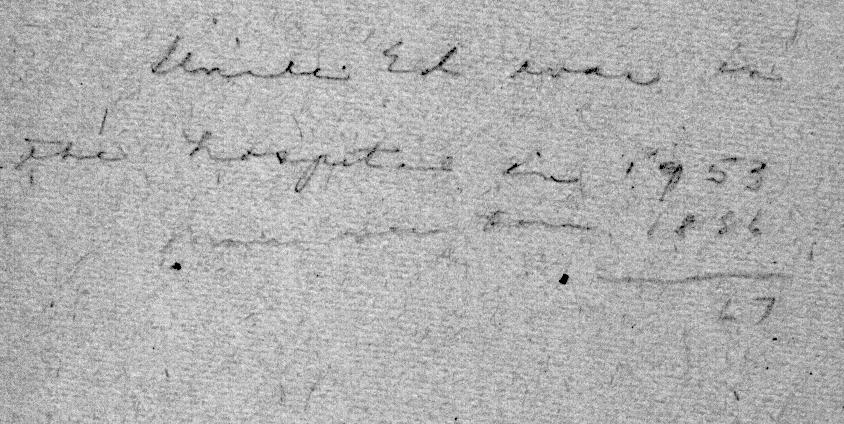 Uncle Ed was in
the hospital in 1953
born 1886
67